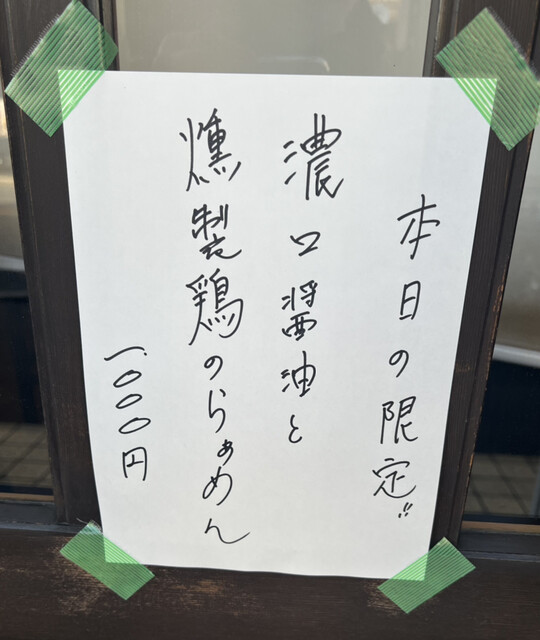 本日の限定‼
濃口醤油と
燻製鶏のらぁめん
一.〇〇〇円